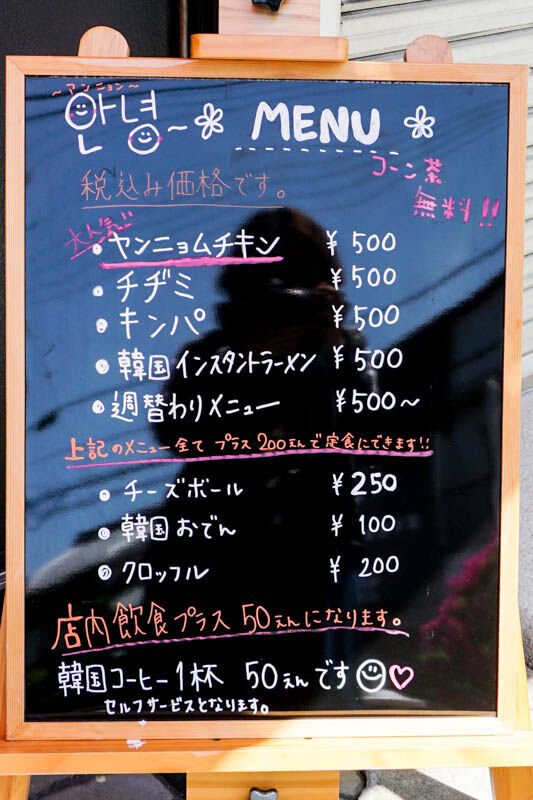 ～アンニョン～
안녕～
MENU
コーン茶
無料!!
税込み価格です。
大人気!!
・ヤンニョムチキン ¥500
・チヂミ ¥500
・キンパ ¥500
・韓国インスタントラーメン ¥500
・週替わりメニュー ¥500～
上記のメニュー全て プラス200えんで定食にできます!!
・チーズボール ¥250
・韓国おでん ¥100
・クロッフル ¥200
店内飲食プラス 50えんになります。
韓国コーヒー1杯 50えんです
セルフサービスとなります。